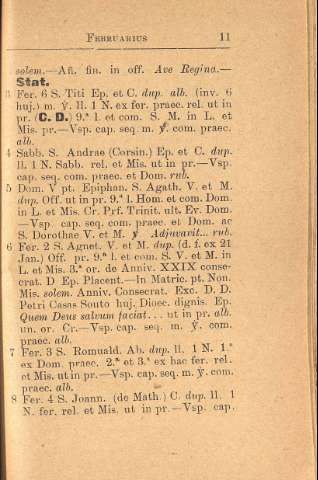 FEBRUARIUS 11
solem.—Añ. fin. in off. Ave Regina.—
Stat.
3 Fer. 6 S. Titi Ep. et C. dup. alb. (inv. 6
huj.) m. ℣. ll. 1 N. ex fer. praec. rel. ut in
pr. (C. D.) 9.ª l. et com. S. M. in L. et
Mis. pr.—Vsp. cap. seq. m. ℣. com. praec.
alb.
4 Sabb. S. Andrae (Corsin.) Ep. et C. dup.
ll. 1 N. Sabb. rel. et Mis. ut in pr.—Vsp.
cap. seq. com. praec. et Dom. rub.
5 Dom. V pt. Epiphan. S. Agath. V. et M.
dup. Off. ut in pr. 9.ª l. Hom. et com. Dom.
in L. et Mis. Cr. Prf. Trinit. ult. Ev. Dom.
—Vsp. cap. seq. com. praec. et Dom. ac
S. Dorothae V. et M. ℣ Adjuvavit... rub.
6 Fer. 2 S. Agnet. V. et M. dup. (d. f. ex 21
Jan.) Off. pr. 9.ª l. et com. S. V. et M. in
L. et Mis. 3.ª or. de Anniv. XXIX conse-
crat. D Ep. Placent.—In Matric. pt. Non.
Mis. solem. Anniv. Consecrat. Exc. D. D.
Petri Casas Souto huj. Dioec. dignis. Ep.
Quem Deus salvum faciat... ut in pr. alb.
un. or. Cr.—Vsp. cap. seq. m. ℣. com.
praec. alb.
7 Fer. 3 S. Romuald. Ab. dup. ll. 1 N. 1.ª
ex Dom. praec. 2.ª et 3.ª ex hac fer. rel.
et Mis. ut in pr.—Vsp. cap. seq. m. ℣. com.
praec. alb.
8 Fer. 4 S. Joann. (de Math.) C. dup. ll. 1
N. fer. rel. et Mis. ut in pr.—Vsp. cap.